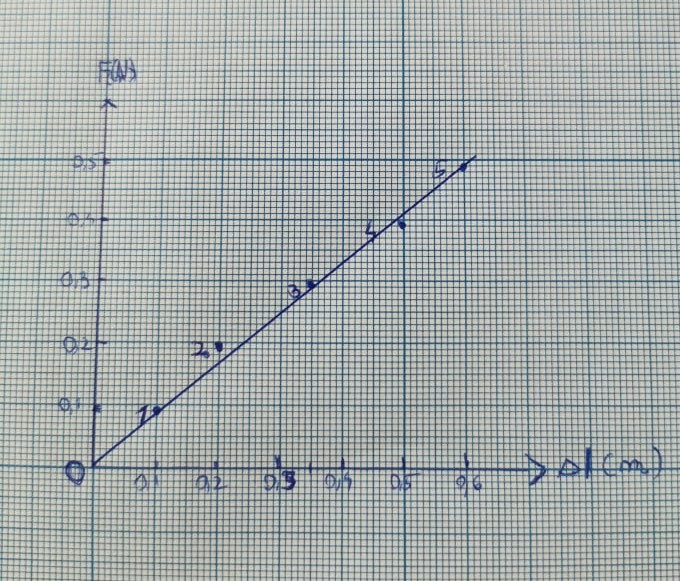 F(N)
0,5
0,4
0,3
0,2
0,1
0
1
2
3
4
5
0,1 0,2 0,3 0,4 0,5 0,6 Δl (m)